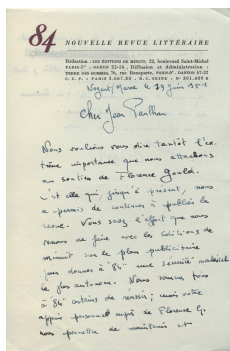 84 NOUVELLE REVUE LITTÉRAIRE
Rédaction : LES ÉDITIONS DE MINUIT, 22, boulevard Saint-Michel
PARIS-6e - ODÉON 22-56 . Diffusion et Administration :
TERRE DES HOMMES, 76, rue Bonaparte, PARIS-6e . DANTON 67-52
C. C. P. : PARIS 5.667.00 . R. C. SEINE : Nº 301.689 B
le 29 juin 1951
Cher Jean Paulhan
Nous voulions vous dire tantôt l'ex-
trême importance que nous attachons
au soutien de Florence Gould.
C'est elle qui, jusqu'à présent, nous
a permis de continuer à publier la
revue. Vous savez l'effort que nous
venons de faire avec les éditions de
minuit sur le plan publicitaire
pour donner à "84" une sécurité matérielle
et plus autonome. Nous sommes tous
à 84 certains de réussir ; mais votre
appui personnel auprès de Florence G.
nous permettra de maintenir et